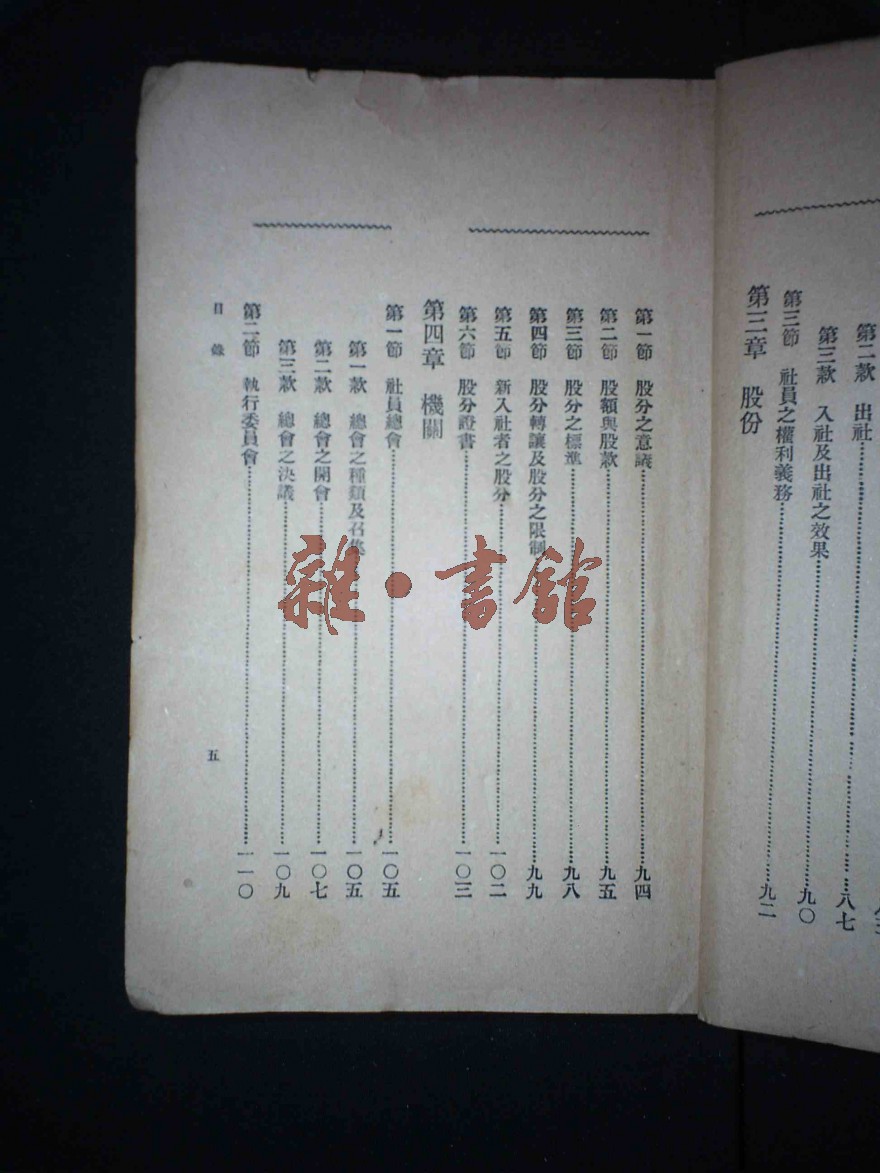 第二款 出社……八七
第三款 入社及出社之效果……九〇
第三節 社員之權利義務……九二
第三章 股份
第一節 股分之意議……九四
第二節 股額與股款……九五
第三節 股分之標準……九八
第四節 股分轉讓及股分之限制……九九
第五節 新入社者之股分……一〇二
第六節 股分證書……一〇三
第四章 機關
第一節 社員總會……一〇五
第一款 總會之種類及召集……一〇五
第二款 總會之開會……一〇七
第三款 總會之決議……一〇九
第二節 執行委員會……一一〇
目錄
五
雜·書館